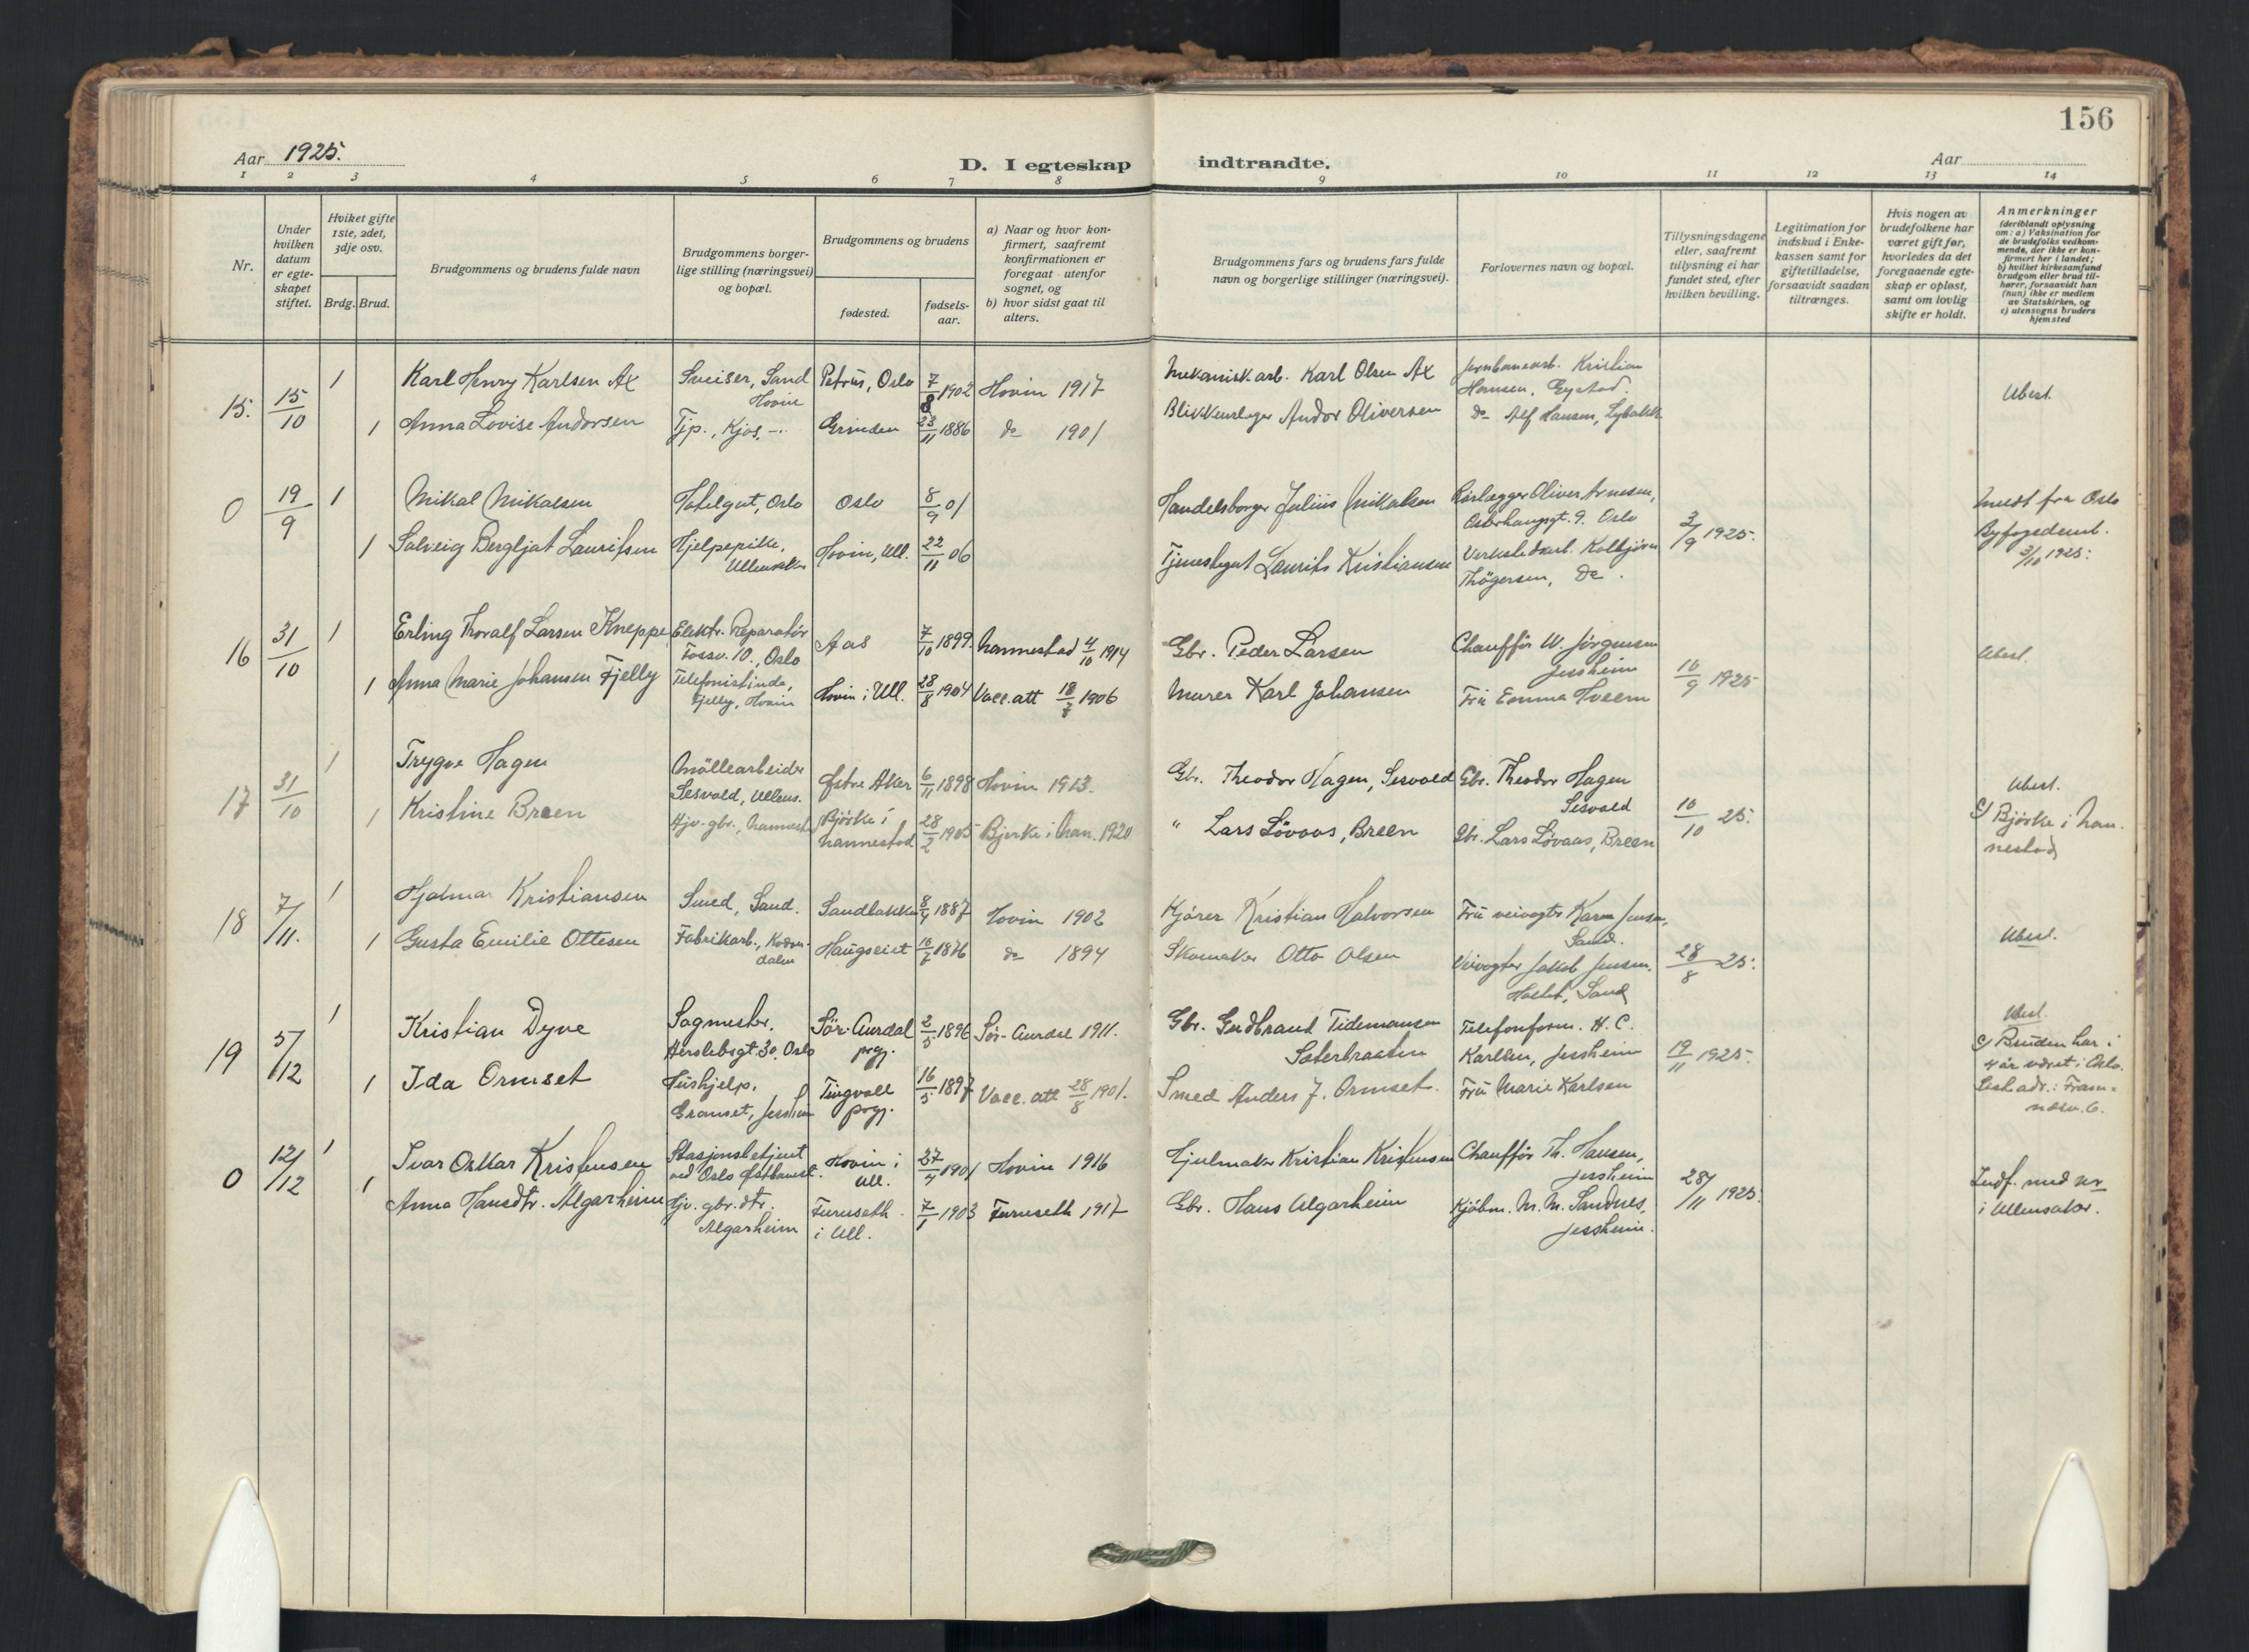 156
Aar 1925.
D. I egteskap indtraadte.
Aar
1 2 3 4 5 6 7 8 9 10 11 12 13 14
Nr.
Under hvilken datum er egteskapet stiftet.
Hviket gifte 1ste, 2det, 3dje osv.
Brdg. Brud.
Brudgommens og brudens fulde navn
Brudgommens borgerlige stilling (næringsvei) og bopæl.
Brudgommens og brudens
fødested.
fødselsaar.
a) Naar og hvor konfirmert, saafremt konfirmationen er foregaat utenfor sognet, og
b) hvor sidst gaat til alters.
Brudgommens fars og brudens fars fulde navn og borgerlige stillinger (næringsvei).
Forlovernes navn og bopæl.
Tillysningsdagene eller, saafremt tillysning ei har fundet sted, efter hvilken bevilling.
Legitimation for indskud i Enkekassen samt for giftetilladelse, forsaavidt saadan tiltrænges.
Hvis nogen av brudefolkene har været gift før, hvorledes da det foregaaende egteskap er opløst, samt om lovlig skifte er holdt.
Anmerkninger
(deriblandt oplysning om: a) Vaksination for de brudefolks vedkommende, der ikke er konfirmert her i landet;
b) hvilket kirkesamfund brudgom eller brud tilhører, forsaavidt han (hun) ikke er medlem av Statskirken, og
c) utensogns bruders hjemsted
15. 15/10 1 Karl Henry Karlsen Ax Sveiser, Sand Hovin Petrus, Oslo 7/8 1902 Hovin 1917 Mekanisk arb. Karl Olsen Ax Jernbanearb. Kristian Hansen, Gystad. Ubest.
1 Anna Lovise Andorsen Tjp., Kjos, -- Grinden 23/11 1886 do 1901 Blikkenslager Andor Oliversen do Alf Hansen,
0 19/9 1 Mikal Mikalsen Oslo Oslo 8/9 01 Handelsborger Julius Mikalsen Rørlægger Oliver Arnesen, Oslo 3/9 1925. Meldt fra Oslo Byfogedemb. 3/10 1925.
1 Solveig Bergljot Lauritsen Hjelpepike, Ullensaker Hovin, Ull. 22/11 06 Tjenestegut Laurits Kristiansen Verkstedarb. Kolbjörn Thögersen, do.
16 31/10 1 Erling Thoralf Larsen Kneppe Elektr. Reparatör Fossv. 10., Oslo Aas 7/10 1899. Nannestad 4/10 1914 Gbr. Peder Larsen Chaufför W. Jörgensen Jessheim 10/9 1925 Ubest.
1 Anna Marie Johansen Fjelly Telefonistinde, Fjelly, Hovin Hovin i Ull. 28/8 1904 Vacc.att 18/7 1906 Murer Karl Johansen Fru Emma Hveem
17 31/10 1 Trygve Hagen Möllearbeider Sesvold, Ullens. Østre Aker 6/11 1898 Hovin 1913. Gbr. Theodor Hagen, Sesvold Gbr. Theodor Hagen Sesvold 10/10 25. Ubest.
1 Kristine Breen Hjv. gbr., Nannestad Bjørke i Nannestad 28/2 1905 Bjerke i Nan. 1920 " Lars Løvaas, Breen Gbr. Lars Løvaas, Breen c) Bjørke i Nannestad
18 7/11. 1 Hjalmar Kristiansen Smed, Sand. Sandbakken 1887 Hovin 1902 Kjører Kristian Halvorsen Fru veivogter Karen Jensen, Sand. Ubest.
1 Gusta Emilie Ottesen Fabrikarb., Haugseiet 1876 do 1894 Skomaker Otto Olsen Veivogter Jakob Jensen. Sand 28/8 25.
19 5/12 1 Kristian Dyve Sagmester. Herslebsgt. 30. Oslo Sör-Aurdal prgj. 2/5 1896 Sør-Aurdal 1911. Gbr. Gudbrand Tidemansen Sæterbraaten Telefonform. H. C. Karlsen, Jessheim 19/11 1925. Ubest.
1 Ida Ormset Hushjelp. Granset, Jessheim Tingvoll prgj. 16/5 1897 Vacc. att 28/8 1901. Smed Anders J. Ormset. Fru Marie Karlsen c) Bruden har i 4 år været i Oslo. Sist adr.: Framnæsv. 6.
0 12/12 1 Ivar Oskar Kristensen Stasjonsbetjent ved Oslo Østbanest. Hovin i Ull. 27/4 1901 Hovin 1916 Hjulmaker Kristian Kristensen Chaufför Th. Hansen, Jessheim 28/11 1925. Indf. med nr i Ullensaker.
1 Anna Hansdtr. Algarheim Hjv. gbr.dtr. Algarheim Furuseth i Ull. 7/1 1903 Furuseth 1917 Gbr. Hans Algarheim Kjøbm. M. M. Sandnes, Jessheim.